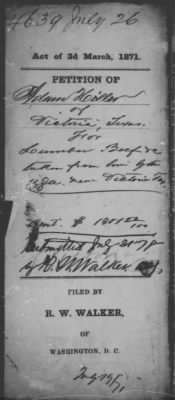 4639 July 26
Act of 3d March, 1871.
PETITION OF
Adam
of
Victoria, Texas
For
Lumber Beef &c
taken from him by the
near Victoria Tex
Amt. $
Submitted July
by R. W. Walker atty,
FILED BY
R. W. WALKER,
OF
WASHINGTON, D. C.